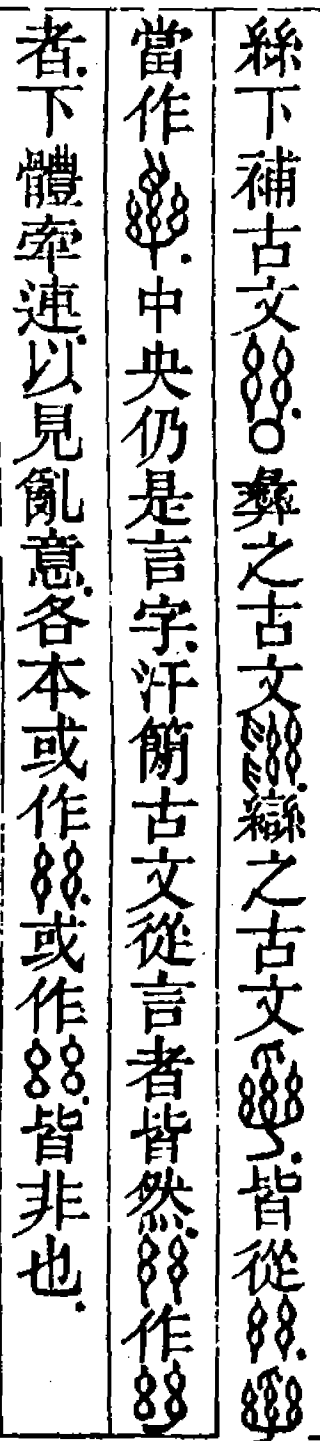 絲下補古文。○彝之古文。䜌之古文。皆從。
當作。中央仍是言字。汗簡古文從言者皆然。作
者。下體牽連。以見亂意。各本或作。或作。皆非也。